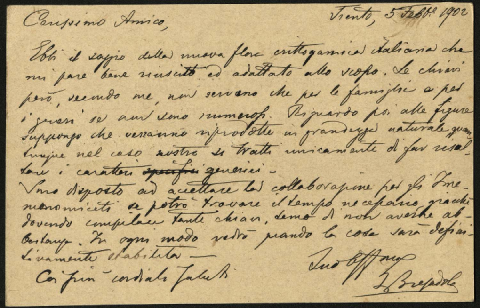 Trento, 5 Febb. 1902
Carissimo Amico,
Ebbi il saggio della nuova flora crittogamica italiana che
mi pare bene riuscito ed adattato allo scopo. Le chiavi
però, secondo me, non servono che per le famiglie e per
i generi se non sono numerosi. Riguardo poi alle figure
suppongo che verranno riprodotte in grandezza naturale quan
tunque nel caso nostro si tratti unicamente di far risal
tare i caratteri specifici generici.
Sono disposto ad accettare la collaborazione per gli Ime
nomiceti se potrò trovare il tempo necessario, giacchè
dovendo compilare tante chiavi, temo di non averne ab
bastanza. In ogni modo vedrò quando la cosa sarà defini
tivamente stabilita.
Coi più cordiali saluti
Suo Aff.mo
G. Bresadola